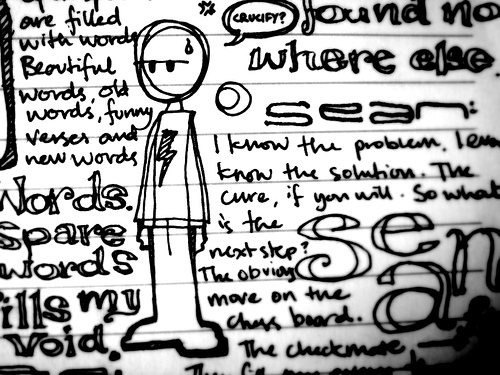 are filled
with words
Beautiful
words, old
words, funny
verses and
new words
Words.
Spare
words
fills my
void.
CRUCIFY?
found no
where else
sean:
I know the problem, I even
know the solution. The
cure, if you will. So what
is the
next step?
The obvious
move on the
chess board.
The checkmate
sean